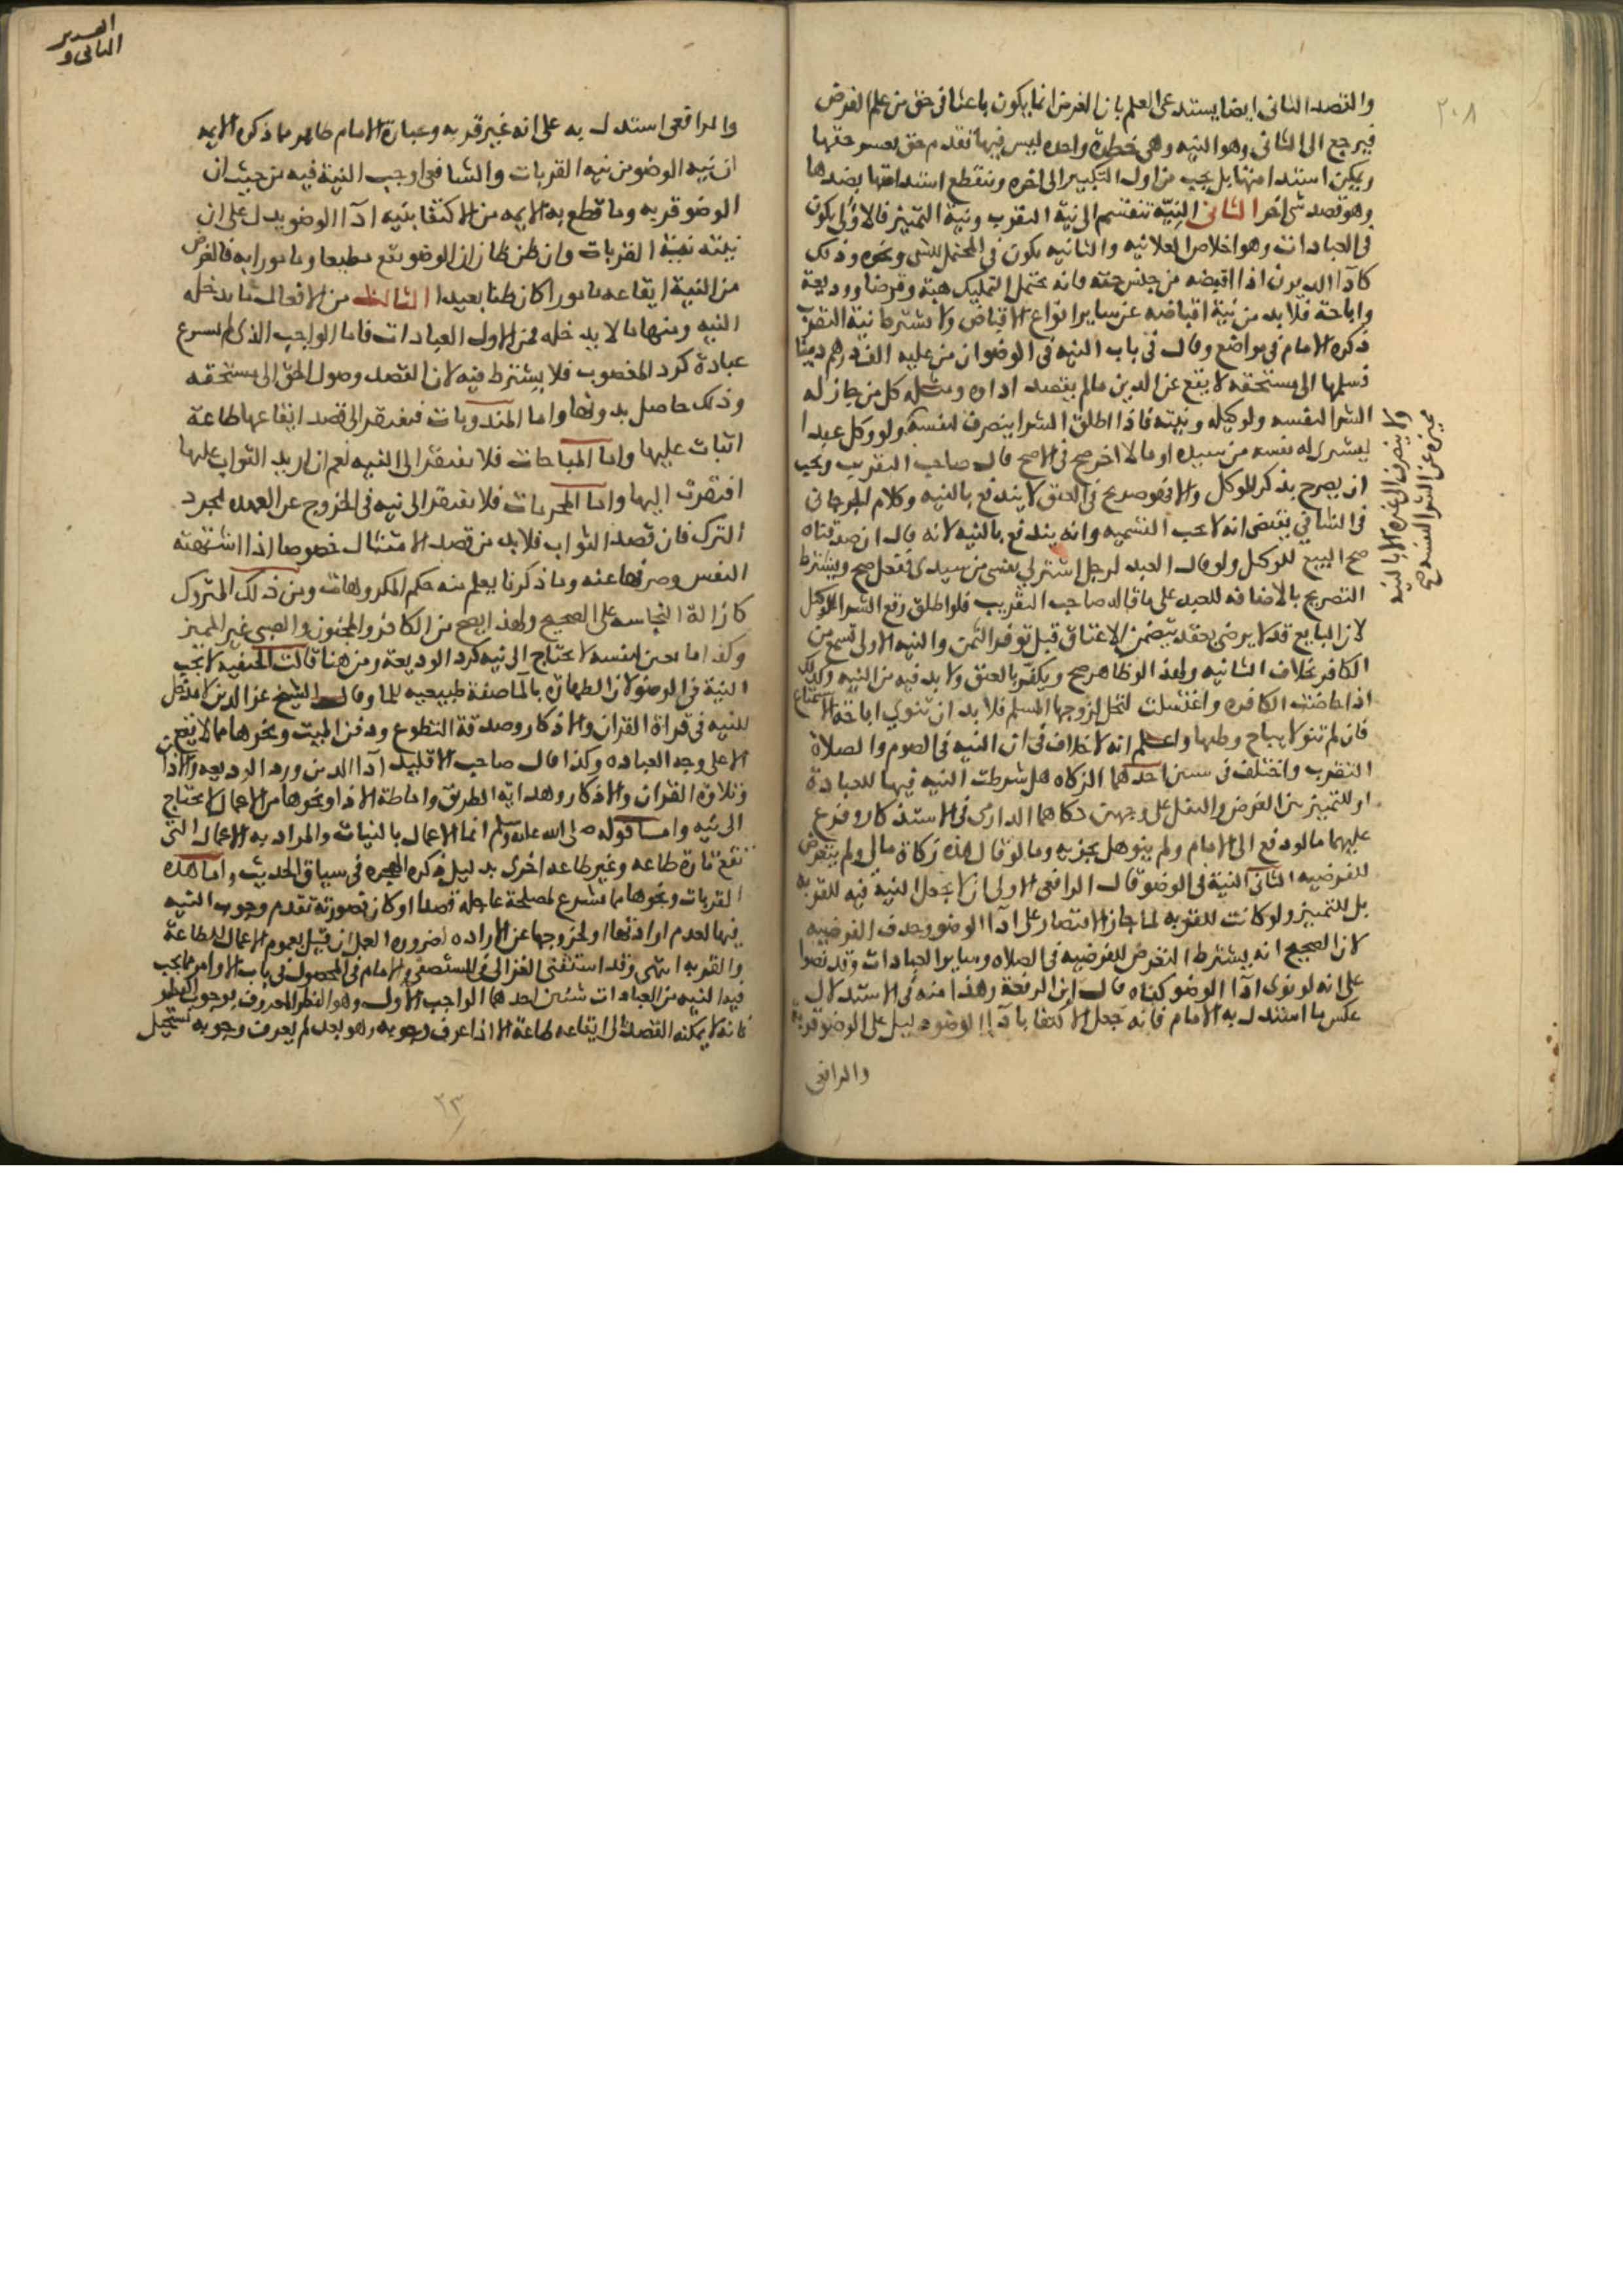 ٢٠٨
والقصد الثانى ايضا يستدعى العلم بان الغرض انما يكون باعثا فى حق من علم الغرض
فيرجع الى الثانى وهو النيه وهى خطرة واحده ليس فيها تقدم حتى يعسر حقها
ويمكن استدامتها بل يجب من اول التكبير الى اخره وينقطع استدامتها بضدها
وهو قصد شى اخر الثانى النيّة تنقسم الى نية التقرب ونية التمييز فالاولى يكون
فى العبادات وهو اخلاص العلانيه والثانيه يكون فى المحتمل للشى وغيره وذلك
كادآ الديون اذا اقبضه من جنس حقه فانه يحتمل التمليك هبة وقرضا ووديعة
واباحة فلا بد من نية اقباضه عن ساير انواع الاقباض ولا يشترط نية التقرب
ذكره الامام فى مواضع وقال فى باب النيه فى الوضو ان من عليه الف درهم دينا
فسلمها الى مستحقه لا يقع عن الدين مالم يقصد اداه ومثله كل من جاز له
الشرا لنفسه ولوكيله ونيته فاذا اطلق الشرا ينصرف لنفسه ولو وكل عبدا
ليشترى له نفسه من سيده او مالا اخر صح فى الاصح قال صاحب التقريب ويجب
ان يصرح بذكر الموكل والا فهو صريح فى العتق لا يندفع بالنيه وكلام الجرجانى
فى الشافي يقتضى انه لا يجب التسميه وانه يندفع بالنيه لانه قال ان صدقناه
صح البيع للوكل ولو قال العبد لرجل اشتر لي نفسى من سيدى ففعل صح ويشترط
التصريح بالاضافه للعبد على ما قاله صاحب التقريب فلو اطلق وقع الشرا للوكيل
لان البايع قد لا يرضى بعقد يتضمن الاعتاق قبل توفر الثمن والنيه الاولى تسمع من
الكافر بخلاف الثانيه ولهذا لو ظاهر صح ويكفر بالعتق ولا بد فيه من النيه وكذلك
اذا حاضت الكافره واغتسلت لتحل لزوجها المسلم فلا بد ان تنوي اباحة الاستمتاع
فان لم تنو لا يباح وطيها واعلم انه لا خلاف فى ان النيه فى الصوم والصلاة
التقرب واختلف فى احدهما الزكاه هل شرطت النيه فيها للعبادة
او للتمييز بين الفرض والنفل على وجهين حكاهما الدارمى فى الاستذكار وفرع
عليهما ما لو دفع الى الامام ولم ينو هل يجزيه وما لو قال هذه زكاة مالي ولم يتعرض
للفرضيه الثانى النية فى الوضو قال الرافعى الاولى ان لا يجعل النية فيه للقربه
بل للتمييز ولو كانت للقربه لما جاز الاقتصار على ادآ الوضو وحذف الفرضيه
لان الصحيح انه يشترط التعرض للفرضيه فى الصلاه وساير العبادات وقد نصوا
على انه لو نوى ادآ الوضو كفاه قال ابن الرفعة وهذا منه فى الاستدلال
عكس ما استدل به الامام فانه جعل الاكتفا بادآ الوضو دليل على الوضو قربة
والرافعى
والرافعى استدل به على انه غير قربه وعبارة الامام ظاهر ما ذكره الايمه
ان نيه الوضو من نيه القربات والشافعى اوجب النية فيه من حيث ان
الوضو قربه وما قطع به الايمه من الاكتفا بنيه ادآ الوضو يدل على ان
نيته نية القربات وان ظن ظان ان الوضو يقع مطيعا ومامورا به فالغرض
من النية ايقاعه مامورا كان ظنا بعيدا الثالث من الافعال ما يدخله
النيه ومنها ما لا يدخله فمن الاول العبادات فاما الواجب الذى لم يشرع
عبادة كرد المغصوب فلا يشترط فيه لان القصد وصول الحق الى مستحقه
وذلك حاصل بدونها واما المندوبات فتفتقر الى قصد ايقاعها طاعة
اثبات عليها واما المباحات فلا تفتقر الى النيه نعم ان اريد الثواب عليها
افتقرت اليها واما المحرمات فلا تفتقر الى نيه فى الخروج عن العهده بمجرد
الترك فان قصد الثواب فلا بد من قصد الامتثال خصوصا اذا اشتهته
النفس وصرفها عنه وما ذكرنا يعلم منه حكم المكروهات ومن ذلك المتروك
كازالة النجاسه على الصحيح ولهذا يصح من الكافر والمجنون والصبي غير المميز
وكذا ما تعين لنفسه لا يحتاج الى نيه كرد الوديعة ومن هنا قالت الحنفيه لا تجب
النية فى الوضو لان الطهارة بالما صفة طبيعيه للما وقال الشيخ عز الدين لا مدخل
للنيه فى قراة القران والاذكار وصدقة التطوع ودفن الميت ونحوها مما لا يقع
الا على وجه العباده وكذا قال صاحب الاقليد ادآ الدين ورد الوديعه والاذان
وتلاوة القران والاذكار وهداية الطريق واماطة الاذا ونحوها من الاعمال لا يحتاج
الى نيه واما قوله صلى الله عليه وسلم انما الاعمال بالنيات والمراد به الاعمال التى
تقع تارة طاعه وغير طاعه اخرى بدليل ذكره الهجره فى سياق الحديث واما هذه
القربات ونحوها مما شرع لمصلحة عاجله قصدا او كان بصورته تقدم وجوب النيه
فيها لعدم او لخروجها عن الاراده لضروره العمل ان قيل بعموم الاعمال للطاعة
والقربه انتهى وقد استثنى الغزالى فى المستصفى والامام فى المحصول فى باب الاوامر مما يجب
فيه النيه من العبادات شيئين احدهما الواجب الاول وهو النظر المعروف بوجوب النظر
فانه لا يمكنه القصد الى ايقاعه طاعة الا اذا عرف وجوبه وهو بعد لم يعرف وجوبه فيستحيل
٢٣